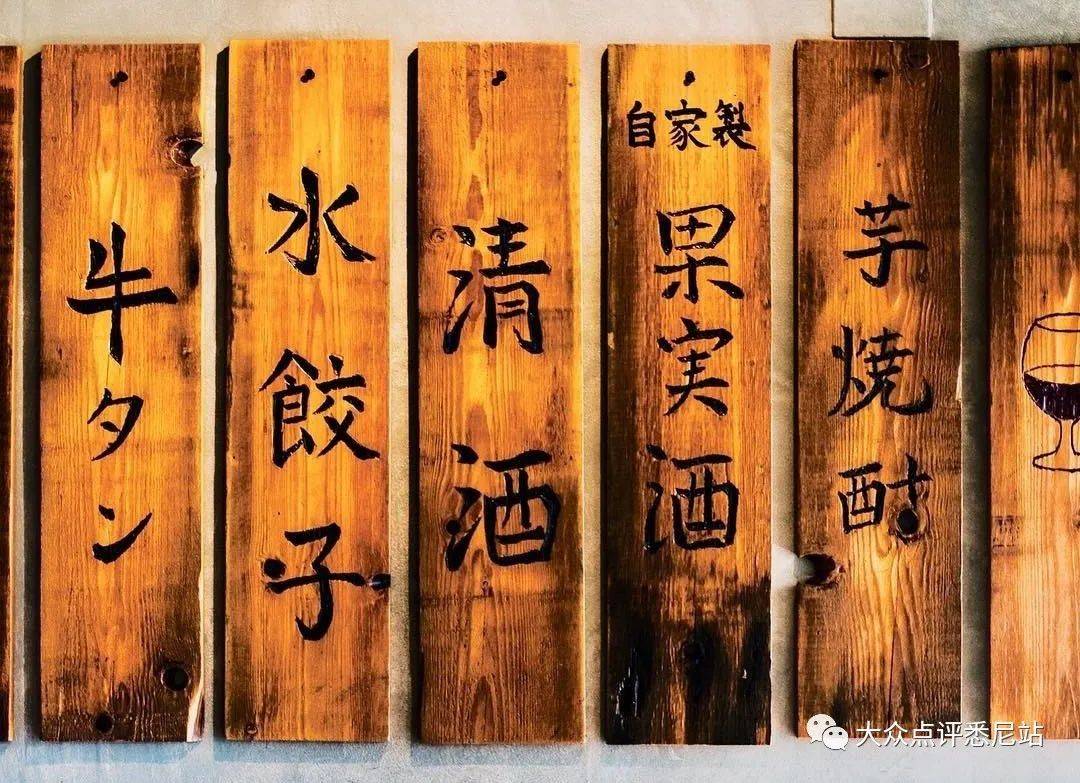 牛タン
水餃子
清酒
自家製
果実酒
芋焼酎
大众点评悉尼站